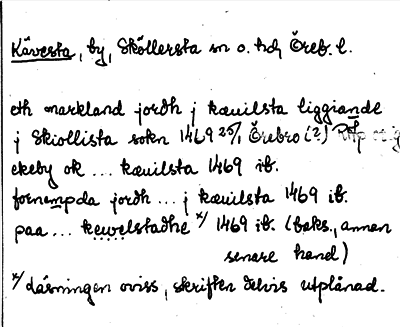 Kävesta, by, Sköllersta sn o. hd, Öreb. l.
eth markland jordh j kæuilsta liggiande
j Skiollista sokn 1469 25/1 Örebro (?) RAp
ekeby ok ... kæuilsta 1469 ib.
fornempda jordh ... j kæuilsta 1469 ib.
paa ... kewelstadhe x/ 1469 ib. (baks., annan
senare hand)
x/ Läsningen oviss, skriften delvis utplånad.